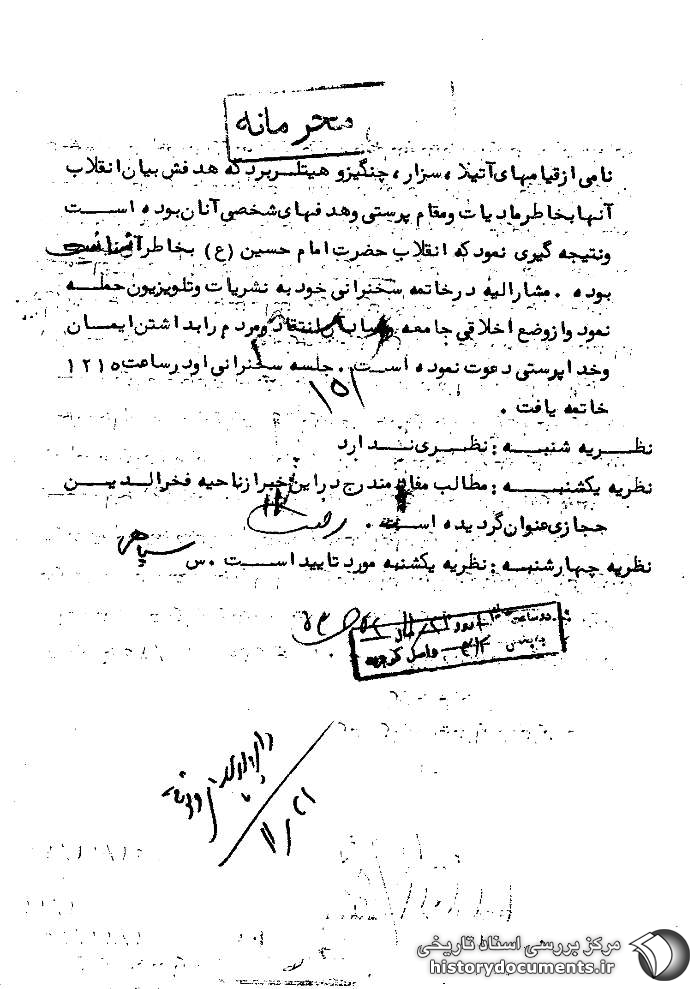 محرمانه
نامی از قیامهای آتیلا، سزار، چنگیز و هیتلر برد که هدفش بیان انقلاب
آنها بخاطر مادیات و مقام پرستی و هدفهای شخصی آنان بوده است
و نتیجه گیری نمود که انقلاب حضرت امام حسین (ع) بخاطر
بوده. مشارالیه در خاتمه سخنرانی خود به نشریات و تلویزیون حمله
نمود و از وضع اخلاقی جامعه انتقاد و مردم را بداشتن ایمان
و خداپرستی دعوت نموده است. جلسه سخنرانی او در ساعت ۱۲۱۵
خاتمه یافت.
نظریه شنبه: نظری ندارد
نظریه یکشنبه: مطالب مندرج در این خبر از ناحیه فخرالدین
حجازی عنوان گردیده است.
نظریه چهارشنبه: نظریه یکشنبه مورد تایید است. س
۱۱/۲۱
مرکز بررسی اسناد تاریخی
historydocuments.ir